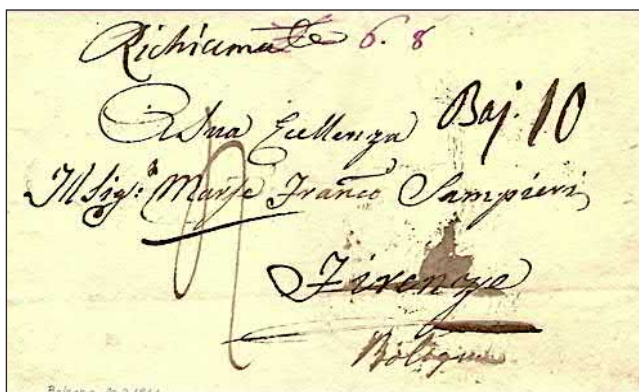 Richiamata 6. 8
A Sua Eccellenza Baj. 10
Il Sig.r Marse Franco Sampieri
Firenze
Bologna